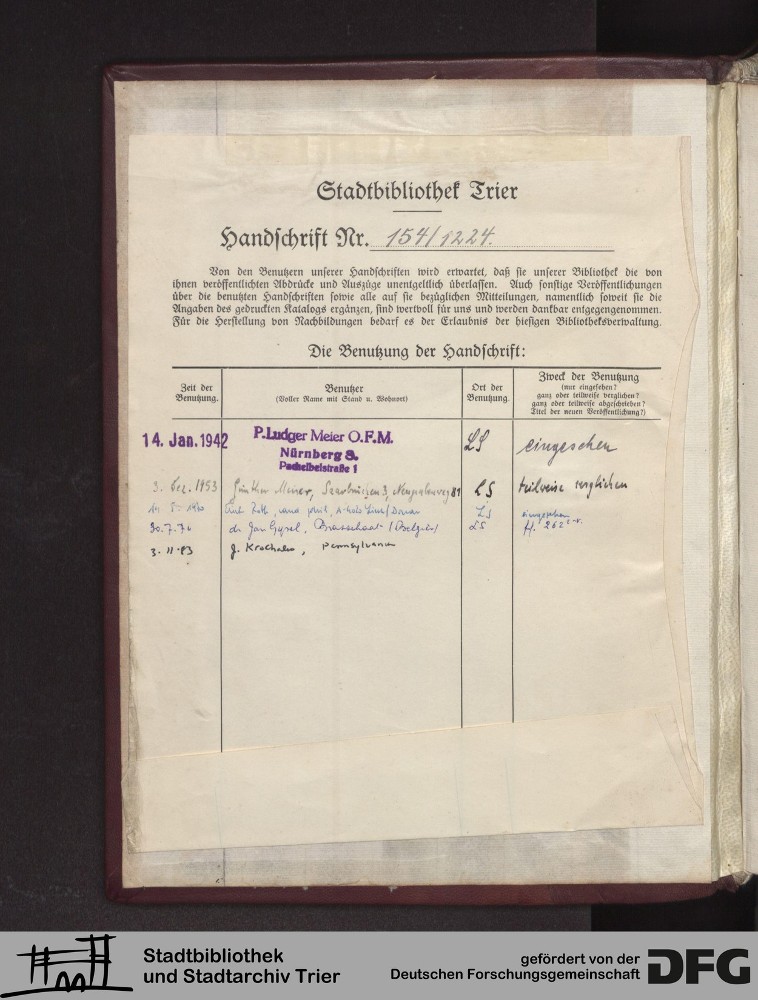 Stadtbibliothek Trier
Handschrift Nr. 154/1224.
Von den Benutzern unserer Handschriften wird erwartet, daß sie unserer Bibliothek die von
ihnen veröffentlichten Abdrücke und Auszüge unentgeltlich überlassen. Auch sonstige Veröffentlichungen
über die benutzten Handschriften sowie alle auf sie bezüglichen Mitteilungen, namentlich soweit sie die
Angaben des gedruckten Katalogs ergänzen, sind wertvoll für uns und werden dankbar entgegengenommen.
Für die Herstellung von Nachbildungen bedarf es der Erlaubnis der hiesigen Bibliotheksverwaltung.
Die Benutzung der Handschrift:
Zeit der
Benutzung.
Benutzer
(Voller Name mit Stand u. Wohnort)
Ort der
Benutzung.
Zweck der Benutzung
(nur eingesehen?
ganz oder teilweise verglichen?
ganz oder teilweise abgeschrieben?
Titel der neuen Veröffentlichung?)
14. Jan. 1942
P. Ludger Meier O.F.M.
Nürnberg 8.
Pachelbelstraße 1
LS
eingesehen
3. Dez. 1953
Günther Meiser, Saarbrücken 3, 81
LS
teilweise verglichen
LS
eingesehen
30.7.76
dr. Jan Gysel, Brasschaat (België)
LS
ff. 262
3.11.83
J. Krochalis, Pennsylvania
Stadtbibliothek
und Stadtarchiv Trier
gefördert von der
Deutschen Forschungsgemeinschaft
DFG